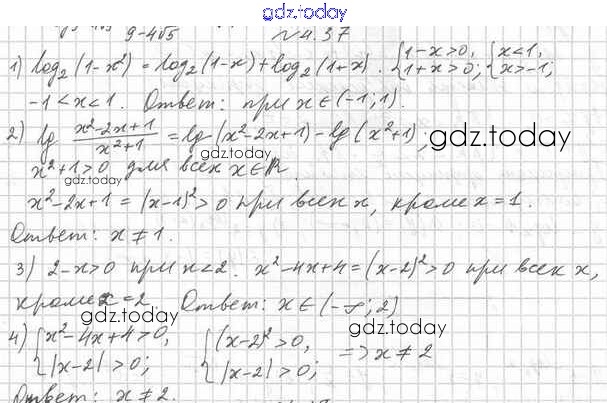 gdz.today
9-4√5 №4.37
1) log₂(1-x²) = log₂(1-x)+log₂(1+x). {1-x>0, 1+x>0; {x<1, x>-1;
-1<x<1. Ответ: при x∈(-1;1).
2) lg (x²-2x+1)/(x²+1) = lg(x²-2x+1)-lg(x²+1);
gdz.today
x²+1>0 для всех x∈R.
gdz.today
x²-2x+1=(x-1)²>0 при всех x, кроме x=1.
gdz.today
Ответ: x≠1.
3) 2-x>0 при x<2. x²-4x+4=(x-2)²>0 при всех x,
кроме x=2. Ответ: x∈(-∞;2)
gdz.today
4) {x²-4x+4>0, |x-2|>0; {(x-2)²>0, |x-2|>0; => x≠2
gdz.today
Ответ: x≠2.